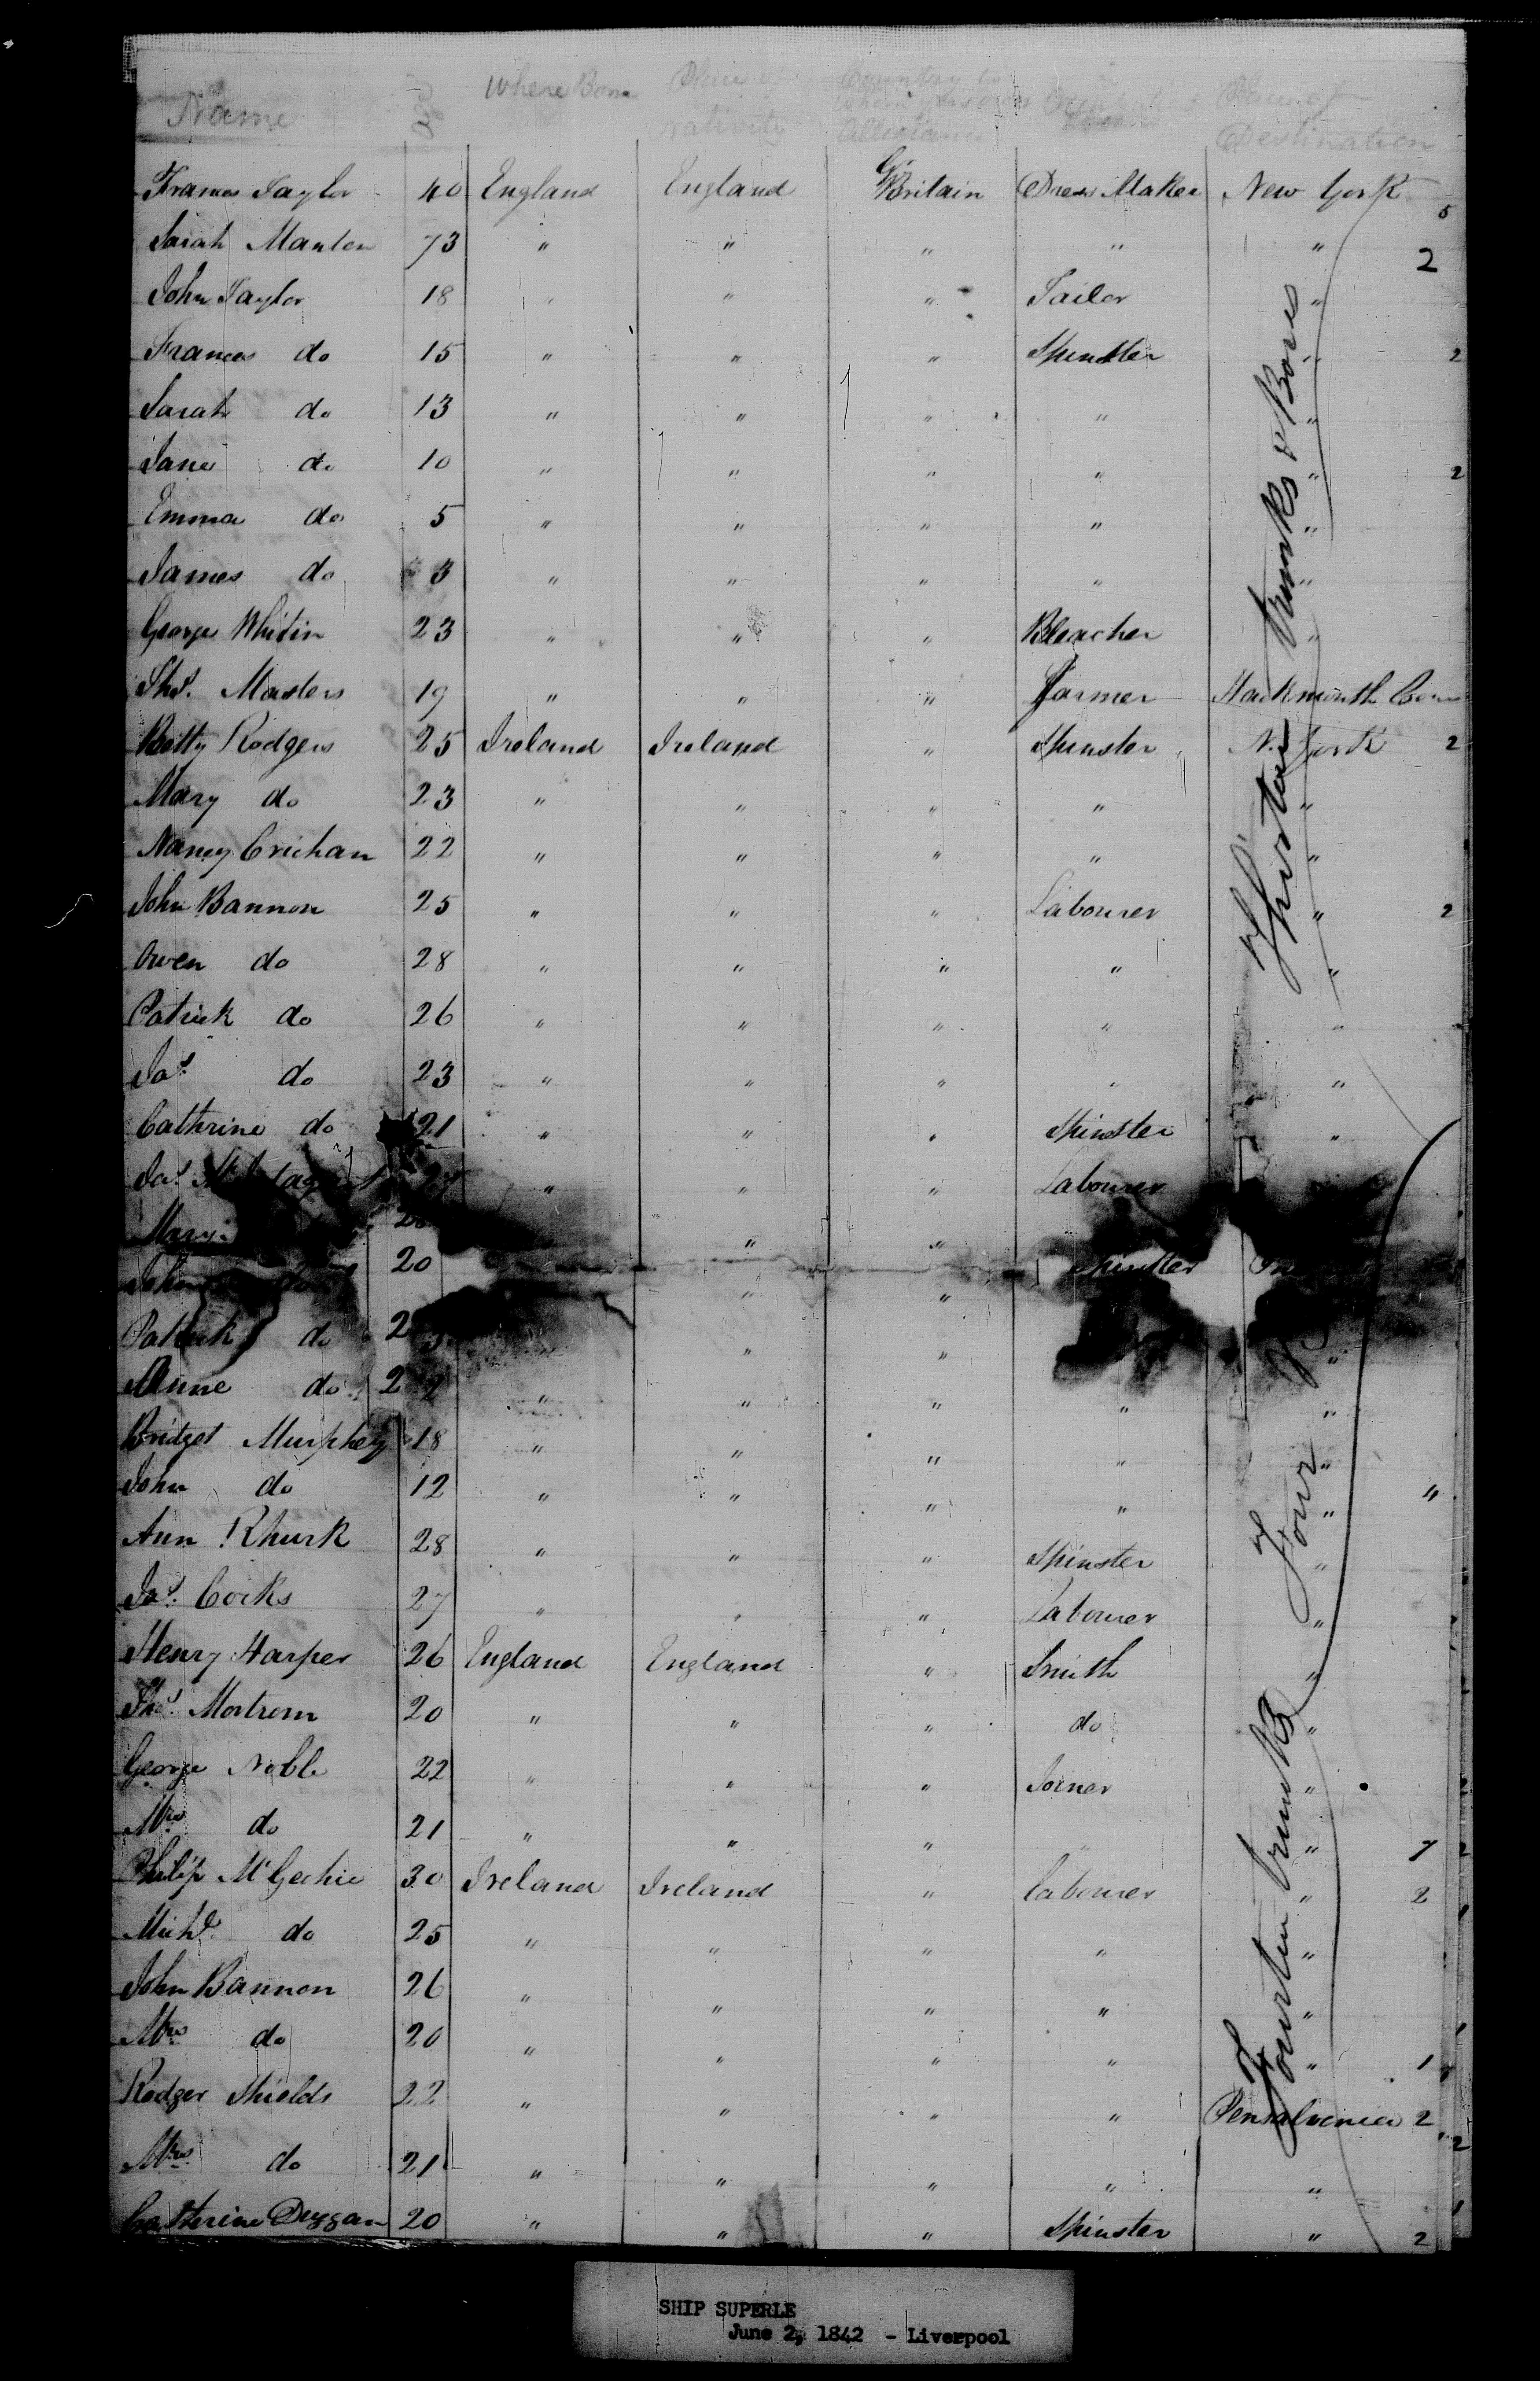 Name Aged Where Born Place of Nativity Country to which you owe Allegiance Occupation Place of Destination
Frances Taylor 40 England England Gt Britain Dress Maker New York 5
Sarah Manten 73 " " " " " 2
John Taylor 18 " " " Tailor "
Frances do 15 " " " Spinster " 2
Sarah do 13 " " " " "
Jane do 10 " " " " " 2
Emma do 5 " " " " "
James do 3 " " " " "
George Whitin 23 " " " Bleacher "
Thos. Masters 19 " " " Farmer
Betty Rodgers 25 Ireland Ireland " Spinster N. York 2
Mary do 23 " " " " "
Nancy Crichan 22 " " " " "
John Bannon 25 " " " Labourer " 2
Owen do 28 " " " " "
Patrick do 26 " " " " "
Jas. do 23 " " " " "
Cathrine do 21 " " " Spinster "
Jas. 27 " " " Labourer
Mary " "
John 20 " " Spinster
Patrick do " " "
Anne do 22 " " " " "
Bridget Murphey 18 " " " " "
John do 12 " " " " " "
Ann Rhurk 28 " " " Spinster "
Jas. Corks 27 " " " Labourer "
Henry Harper 26 England England " Smith "
Thos. Mortrom 20 " " " do "
George Noble 22 " " " Joiner "
Mrs do 21 " " " " " 7 2
Philip McGechie 30 Ireland Ireland " Labourer " 2
Michl. do 25 " " " " "
John Bannon 26 " " " " "
Mrs do 20 " " " " " 1
Rodger Shields 22 " " " " Pensalvenia 2
Mrs do 21 " " " " " 2
Catherine Duggan 20 " " " Spinster " 2
Thirteen trunks & Boxes
Four
Fourteen trunks
SHIP SUPERLE
June 2, 1842 - Liverpool